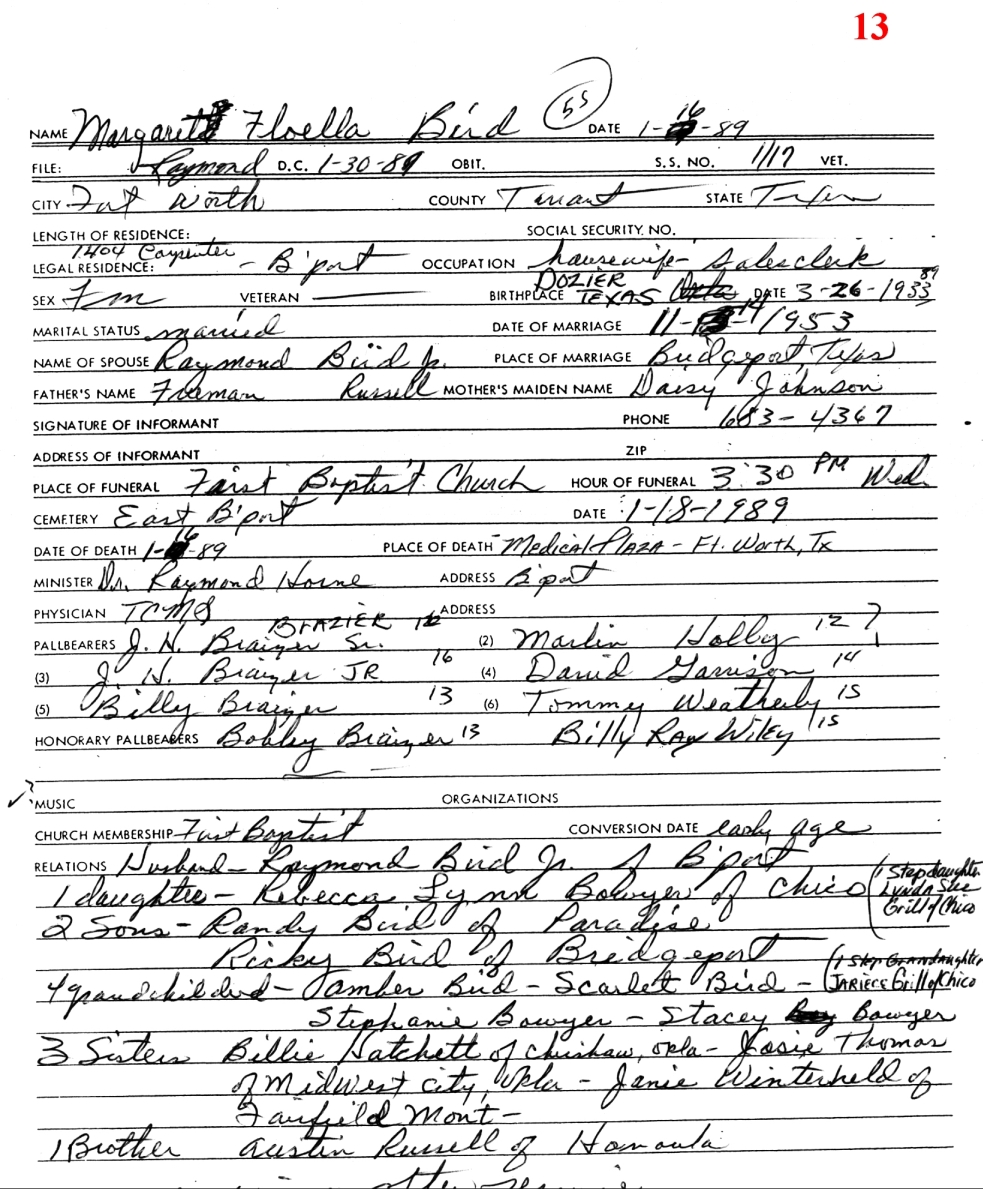 13
NAME Margaret Floella Bird 55 DATE 1-16-89
FILE: Raymond D.C. 1-30-89 OBIT. S.S. NO. 1/17 VET.
CITY Fort Worth COUNTY Tarrant STATE Texas
LENGTH OF RESIDENCE: SOCIAL SECURITY NO.
1404 Carpenter
LEGAL RESIDENCE: - B'port OCCUPATION housewife - Salesclerk
SEX Fm VETERAN BIRTHPLACE DOZIER TEXAS Okla DATE 3-26-1933 89
MARITAL STATUS married DATE OF MARRIAGE 11-14-1953
NAME OF SPOUSE Raymond Bird Jr. PLACE OF MARRIAGE Bridgeport, Texas
FATHER'S NAME Freeman Russell MOTHER'S MAIDEN NAME Daisy Johnson
SIGNATURE OF INFORMANT PHONE 683-4367
ADDRESS OF INFORMANT ZIP
PLACE OF FUNERAL First Baptist Church HOUR OF FUNERAL 3:30 PM Wed.
CEMETERY East B'port DATE 1-18-1989
DATE OF DEATH 1-16-89 PLACE OF DEATH Medical Plaza - Ft. Worth, Tx
MINISTER Dr. Raymond Horne ADDRESS B'port
PHYSICIAN TCMS ADDRESS
BRAZIER 16
PALLBEARERS J. H. Braizer Sr. (2) Marlin Holly 12 ?
(3) J. H. Braizer JR 16 (4) David Garrison 14
(5) Billy Braizer 13 (6) Tommy Weatherly 15
HONORARY PALLBEARERS Bobby Braizer 13 Billy Ray Wiley 15
MUSIC ORGANIZATIONS
CHURCH MEMBERSHIP First Baptist CONVERSION DATE early age
RELATIONS Husband - Raymond Bird Jr. of B'port
1 daughter - Rebecca Lynn Bowyer of Chico (1 Step daughter Lynda Sue Grill of Chico
2 Sons - Randy Bird of Paradise
Ricky Bird of Bridgeport
4 grandchildred - Amber Bird - Scarlet Bird - (1 Step Grandaughter JARIECE Grill of Chico
Stephanie Bowyer - Stacey Bowyer
3 Sisters Billie Hatchett of Chishaw, Okla - Josie Thomas
of Midwest City, Okla - Janie Winterheld of
Fairfield Mont -
1 Brother Austin Russell of